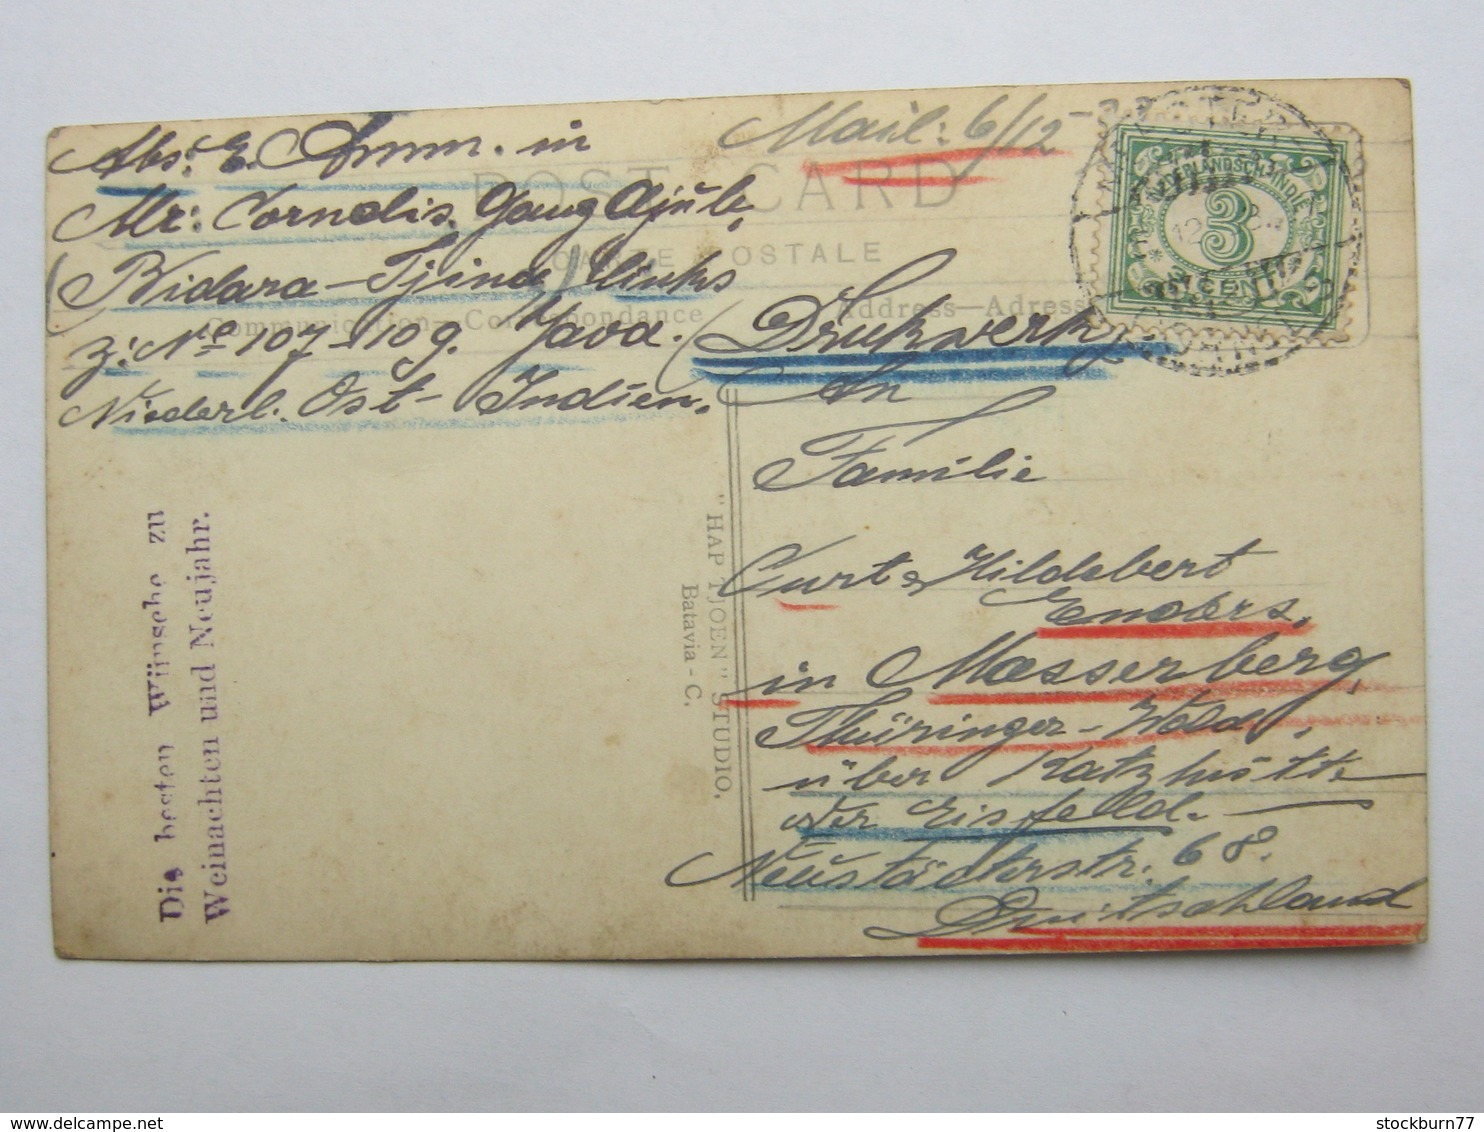 Abs: E. Amm. in
Mr: Cornelis. Gang Adjüb,
(Bidara-Tjina) links
z: No 107-109. Java.
Niederl. Ost-Indien.
Mail: 6/12
POST CARD
CARTE POSTALE
Communication—Correspondance
Address—Adresse
NEDERLANDSCH-INDIE
3
CENT
(Drukwerk)
An
Familie
Curt & Hildebert
Enders,
in Masserberg,
Thüringer-Wald,
über Katzhütte
oder Eisfeld.
Neustädterstr. 68.
Deutschland
"HAP TJOEN" STUDIO,
Batavia - C.
Die besten Wünsche zu
Weinachten und Neujahr.
stockburn77